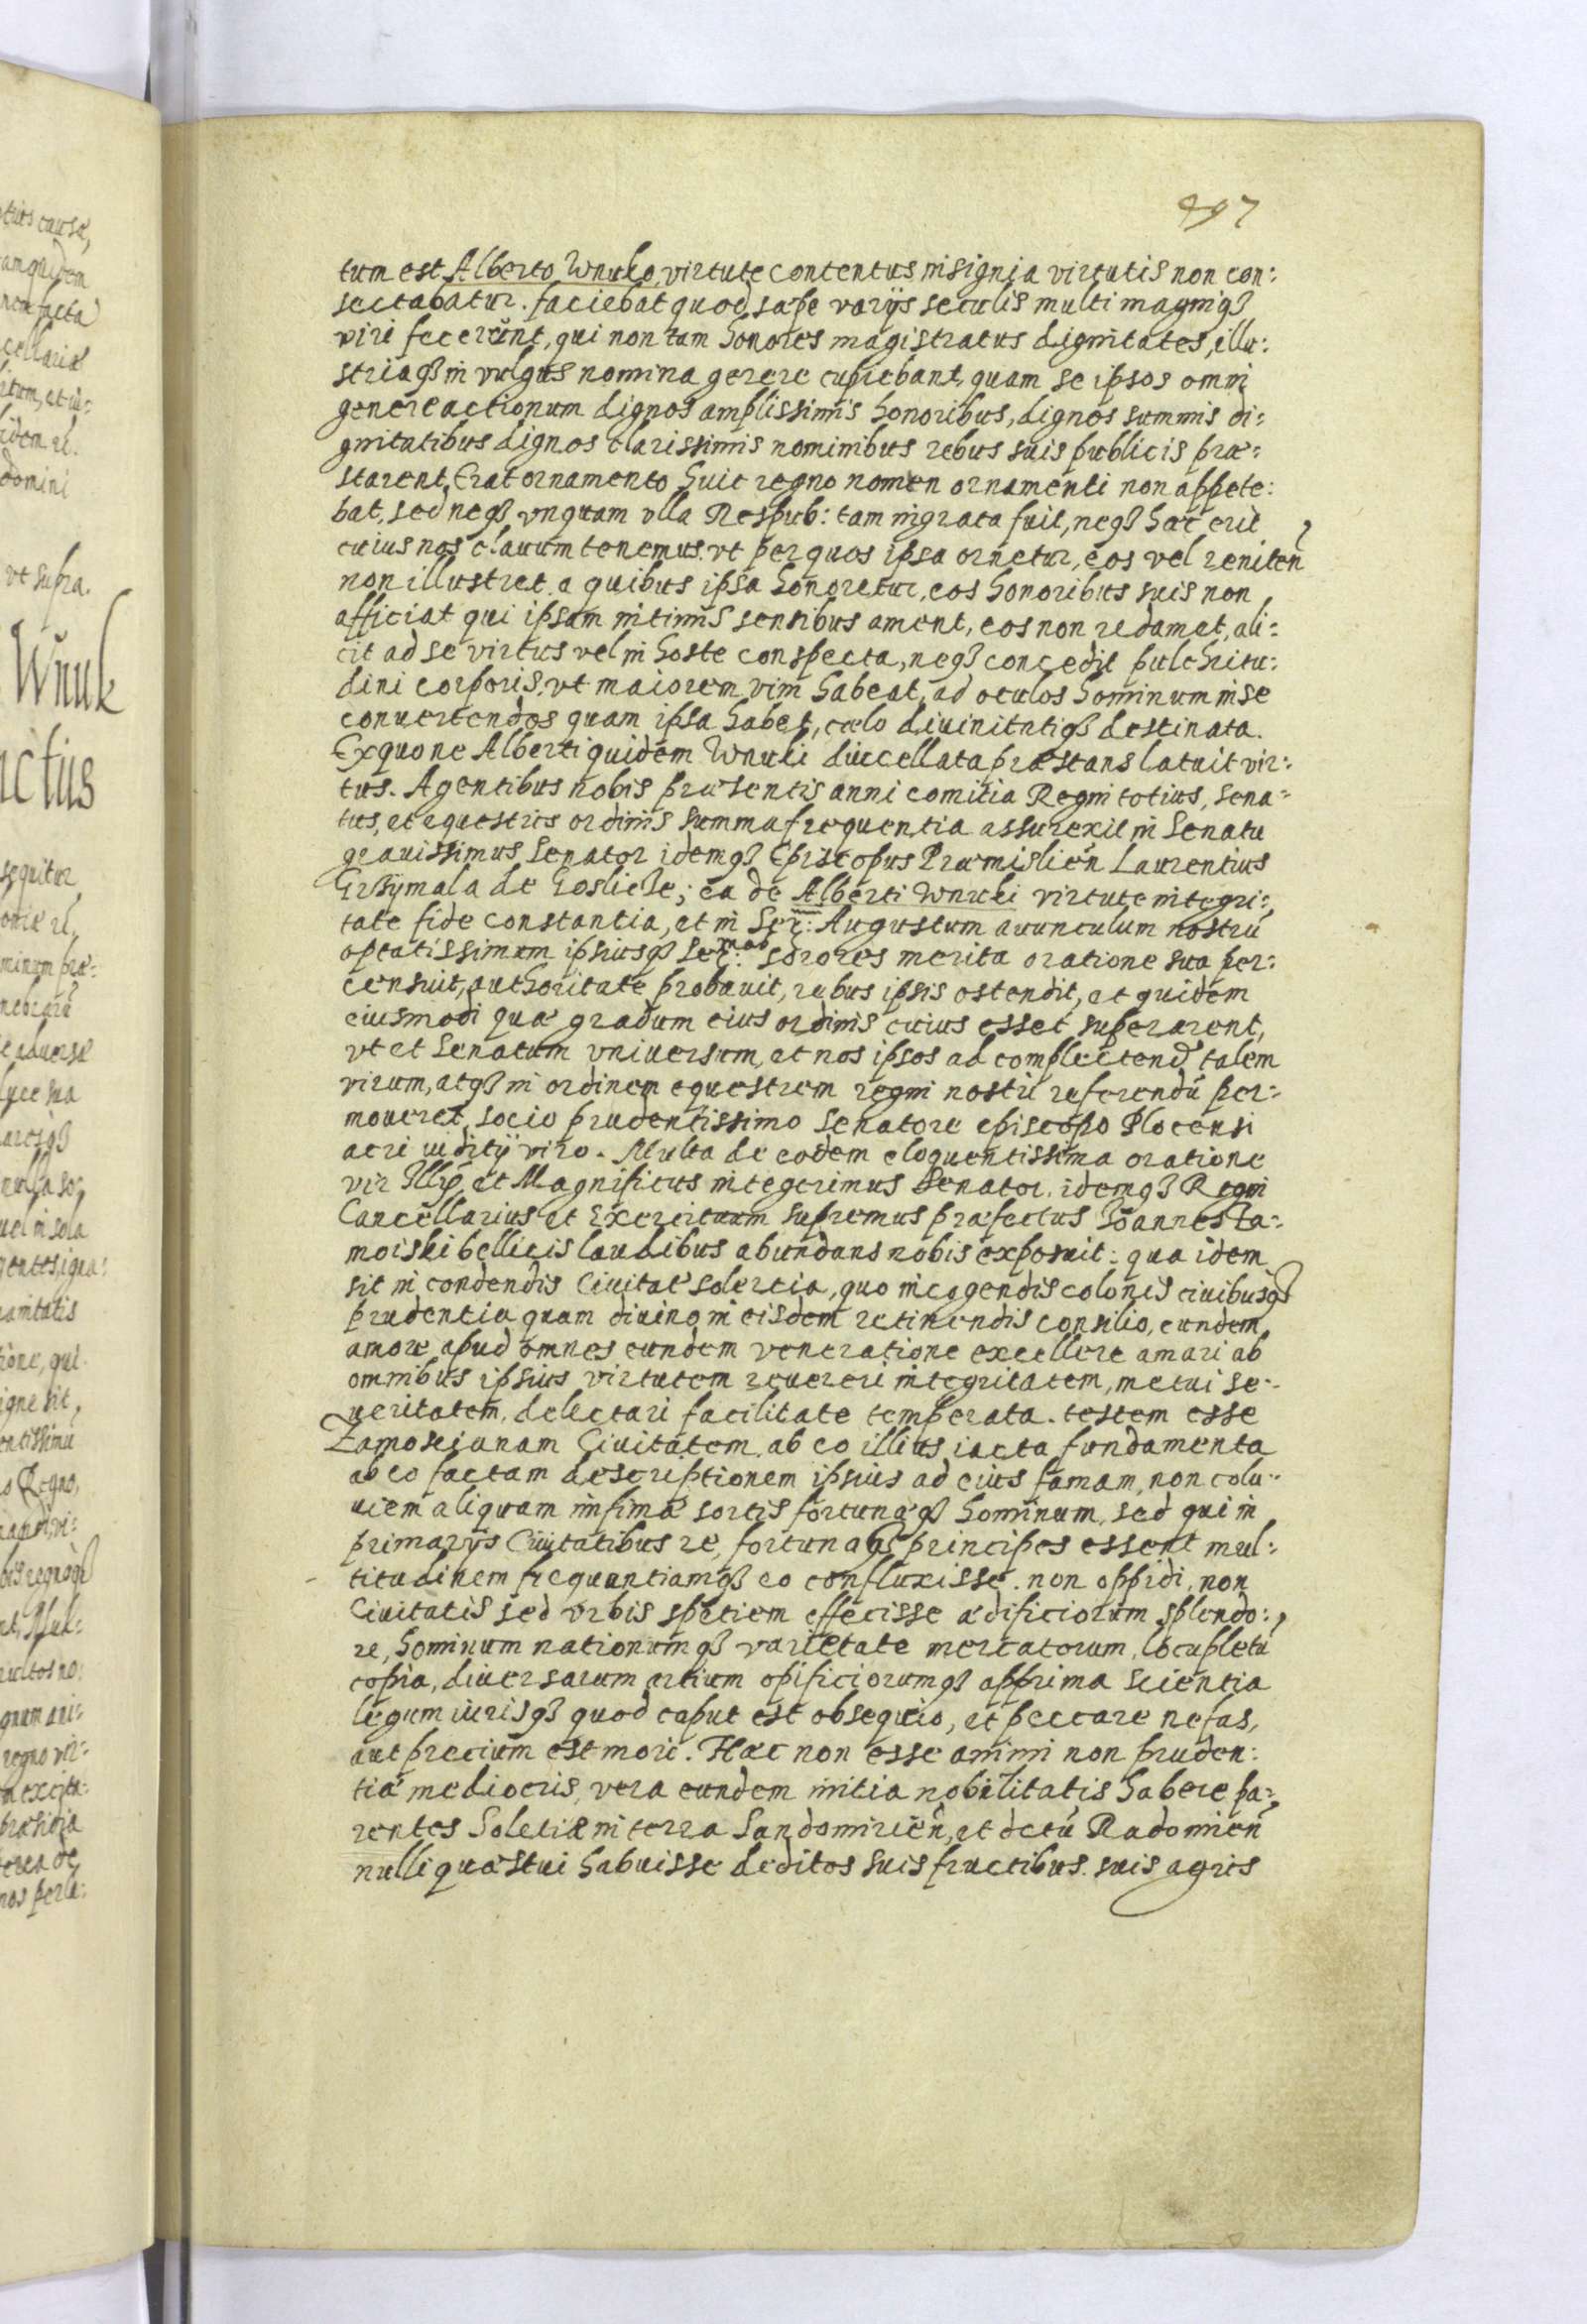 497
tum est Alberto Wnuko, virtute contentus insignia virtutis non con:
sectabatur. faciebat quod sæpe varijs seculis multi magniq3
viri fecerunt, qui non tam honores magistratus dignitates, illu:
striaq3 in vulgus nomina gerere cupiebant, quam se ipsos omni
genere actionum dignos amplissimis honoribus, dignos summis di:
gnitatibus dignos clarissimis nominibus rebus suis publicis præ:
starent, Erat ornamento huic regno nomen ornamenti non appete:
bat, sed neq3 vnquam vlla Respub: tam ingrata fuit, neq3 hæc erit
cuius nos clauum tenemus. vt per quos ipsa ornetur, eos vel reniten
non illustret. a quibus ipsa honoretur, eos honoribus suis non
afficiat qui ipsam intimis sensibus ament, eos non redamet, ali:
cit ad se virtus vel in hoste conspecta, neq3 concedit pulchritu:
dini corporis. vt maiorem vim habeat, ad oculos hominum in se
conuertendos quam ipsa habet, cœlo diuinitatiq3 destinata.
Ex quo ne Alberti quidem Wnuki præstans latuit vir:
tus. Agentibus nobis præsentis anni comitia Regni totius, Sena:
tus, et equestris ordinis summa frequentia assurexit in Senatu
grauissimus Senator idemq3 Episcopus Præmislien̄ Laurentius
de Goslicze; ea de Alberti Wnuki virtute integri:
tate fide constantia, et in Ser: Augustum auunculum nostrū
optatissimum ipsiusq3 Ser:mas sorores merita oratione sua per:
censuit, authoritate probauit, rebus ipsis ostendit, et quidem
eiusmodi quæ gradum eius ordinis cuius esset superarent,
vt et Senatum vniuersum, et nos ipsos ad complectend talem
virum, atq3 in ordinem equestrem regni nostri referendū per:
moueret, socio prudentissimo Senatore episcopo Plocensi
acri iuditij viro. Multa de eodem eloquentissima oratione
vir Ill et Magnificus integerimus Senator. idemq3 Regni
Cancellarius et Exercituum supremus præfectus Ioannes Za:
moiski bellicis laudibus abundans nobis exposuit: qua idem
sit in condendis Ciuitatē solertia, quo in cogendis colonis ciuibusq3
prudentia quam diuino in eisdem retinendis consilio, eundem
amore apud omnes eundem veneratione excellere amari ab
omnibus ipsius virtutem reuereri integritatem, metui se:
ueritatem, delectari facilitate temperata. testem esse
Zamoscianam Ciuitatem, ab eo illius iacta fundamenta
ab eo factam descriptionem ipsius ad eius famam, non colu:
uiem aliquam infimæ sortis fortunæq3 hominum, sed qui in
primarijs Ciuitatibus re, fortunaq3 principes essent mul:
titudinem frequentiamq3 eo confluxisse. non oppidi, non
Ciuitatis sed vrbis spetiem effecisse ædificiorum splendo:
re, hominum nationumq3 varietate mercatorum, locupleti
copia, diuersarum artium opificiorumq3 apprima scientia
legum iurisq3 quod caput est obsequio, et peccare nefas,
aut precium est mori. Hæc non esse animi non pruden:
tiæ mediocris, vera eundem initia nobilitatis habere pa:
rentes Soletiæ in terra Sandomirien̄, et dctu Radomien̄
nulli quæstui habuisse deditos suis fructibus. suis agris